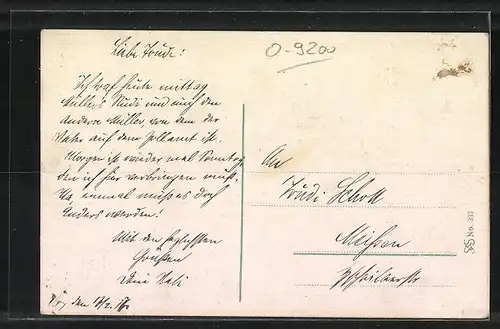 Liebe Trude!
O-9200
Ich traf heute mittag
Müller's Rudi und auch den
anderen Müller, von dem der
Vater auf dem Zollamt ist.
Morgen ist wieder mal Sonntag
den ich hier verbringen muß.
Na, einmal muß es doch
anders werden!
Mit den herzlichsten
Grüßen
Dein
den
An
Trudi Schott
Meißen
No. 337